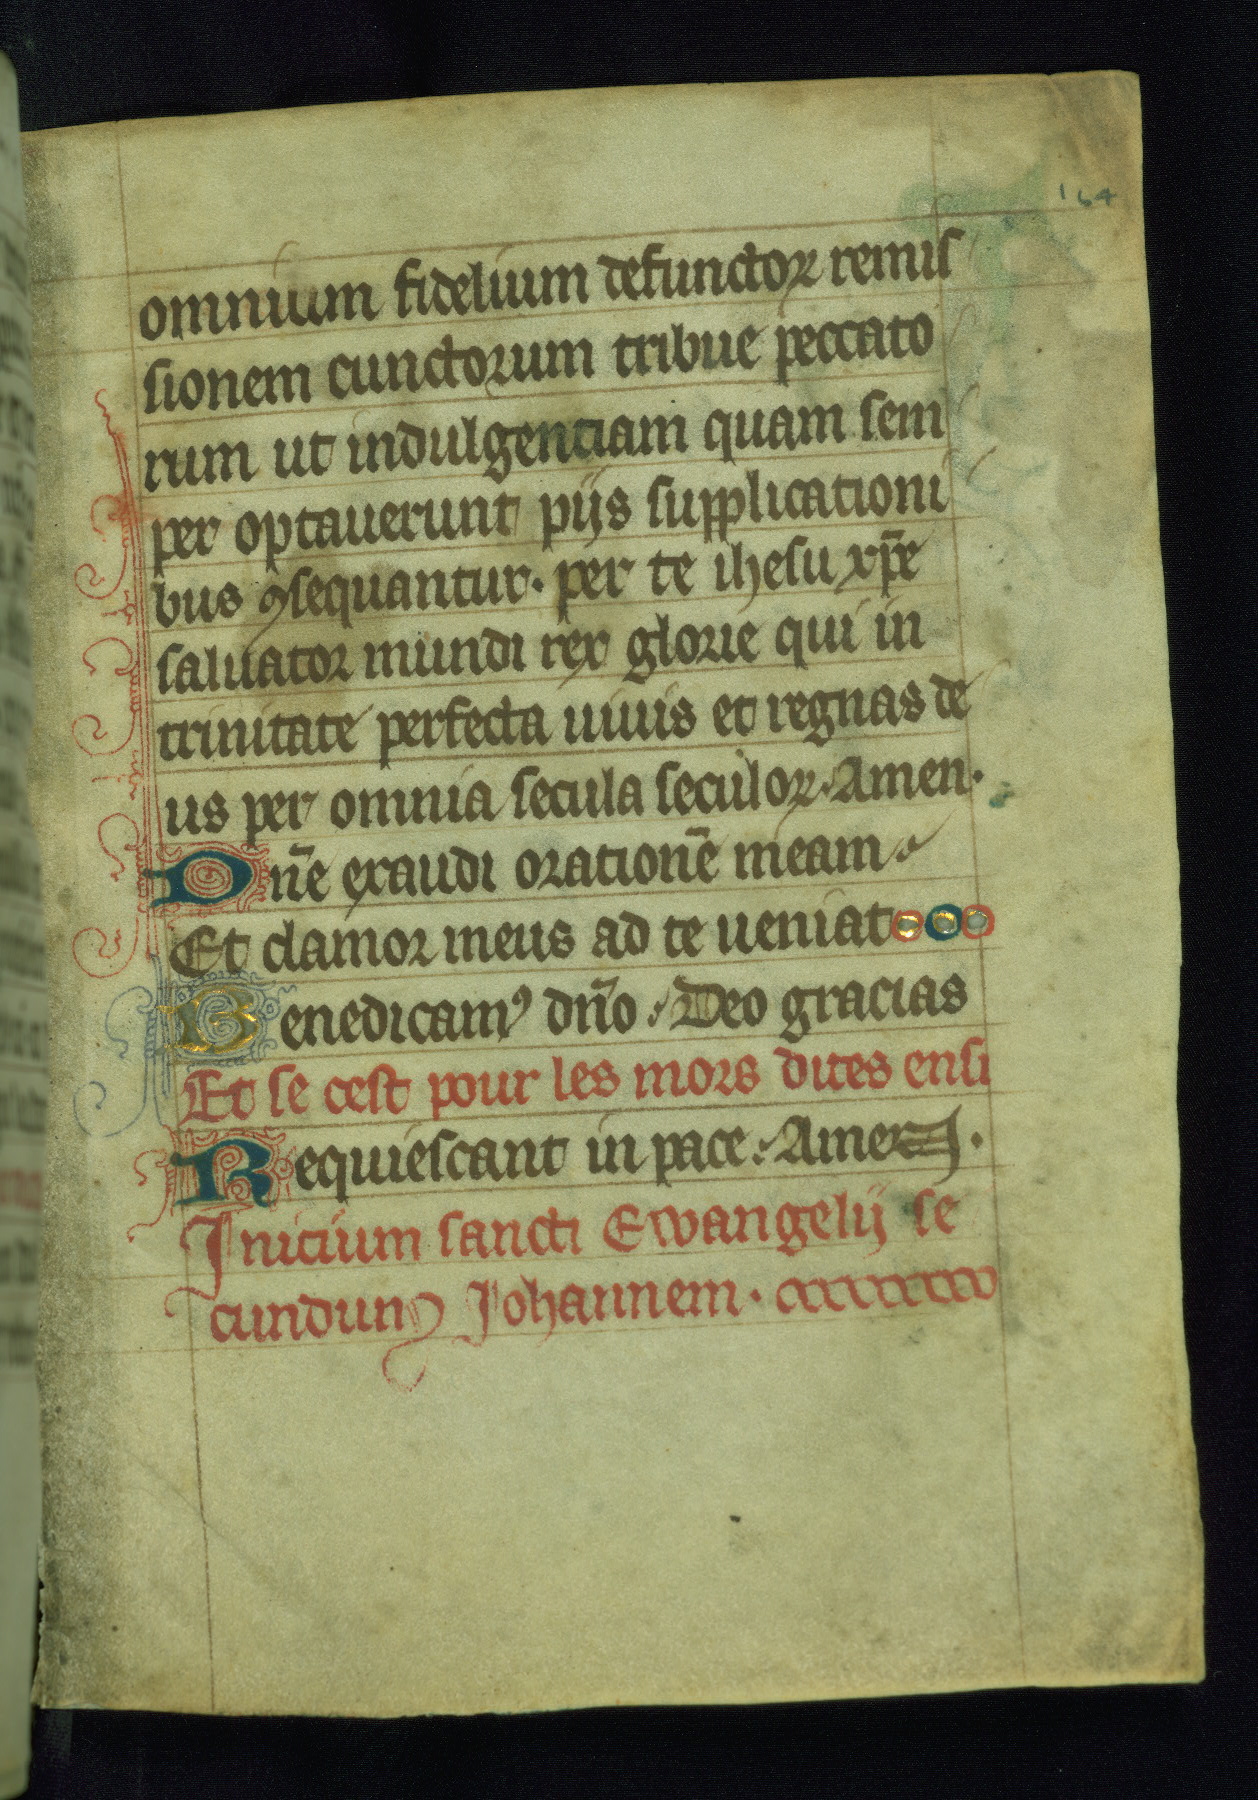 164
omnium fidelium defunctoꝝ remis
sionem cunctorum tribue peccato
rum ut indulgentiam quam sem
per optauerunt pijs supplicationi
bus ꝯsequantur. per te ihesu xp̄e
saluator mundi rex glorie qui in
trinitate perfecta uiuis et regnas de
us per omnia secula seculoꝝ. Amen.
Dn̄e exaudi orationē meam
Et clamor meus ad te ueniat
Benedicamꝰ dn̄o. Deo gracias
Et se cest pour les mors dites ensi
Requiescant in pace. Amen.
Inicium sancti Ewangelij se
cundum Johannem.